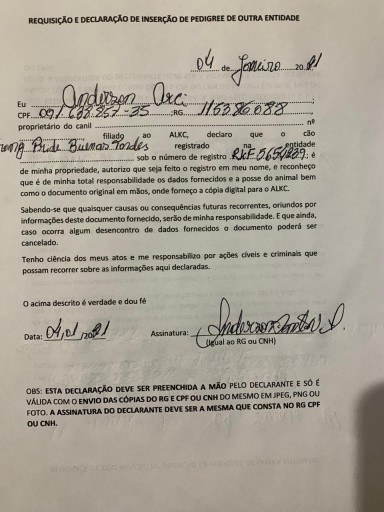 REQUISIÇÃO E DECLARAÇÃO DE INSERÇÃO DE PEDIGREE DE OUTRA ENTIDADE
04 de Janeiro 2021
Eu Anderson
CPF RG
proprietário do canil nº
filiado ao ALKC, declaro que o cão
Pride Buenas Tardes registrado na entidade
sob o número de registro é
de minha propriedade, autorizo que seja feito o registro em meu nome, e reconheço
que é de minha total responsabilidade os dados fornecidos e a posse do animal bem
como o documento original em mãos, onde forneço a cópia digital para o ALKC.
Sabendo-se que quaisquer causas ou consequências futuras recorrentes, oriundos por
informações deste documento fornecido, serão de minha responsabilidade. E que ainda,
caso ocorra algum desencontro de dados fornecidos o documento poderá ser
cancelado.
Tenho ciência dos meus atos e me responsabilizo por ações cíveis e criminais que
possam recorrer sobre as informações aqui declaradas.
O acima descrito é verdade e dou fé
Data: 04/01/2021 Assinatura: Anderson
(Igual ao RG ou CNH)
OBS: ESTA DECLARAÇÃO DEVE SER PREENCHIDA A MÃO PELO DECLARANTE E SÓ É
VÁLIDA COM O ENVIO DAS CÓPIAS DO RG E CPF OU CNH DO MESMO EM JPEG, PNG OU
FOTO. A ASSINATURA DO DECLARANTE DEVE SER A MESMA QUE CONSTA NO RG CPF
OU CNH.